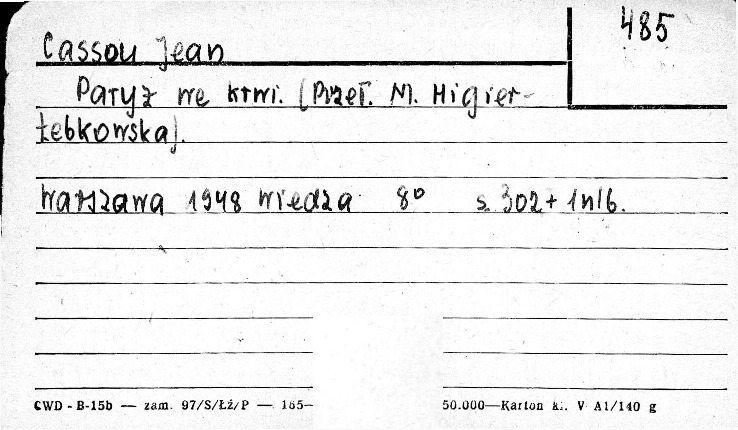 485
Cassou Jean
Paryż we krwi. (Przeł. M. Higier-
Łebkowska).
Warszawa 1948 Wiedza 8° s. 302 + 1 nlb.
CWD - B-15b — zam. 97/S/Łź/P — 165— 50.000—Karton kl. V A1/140 g